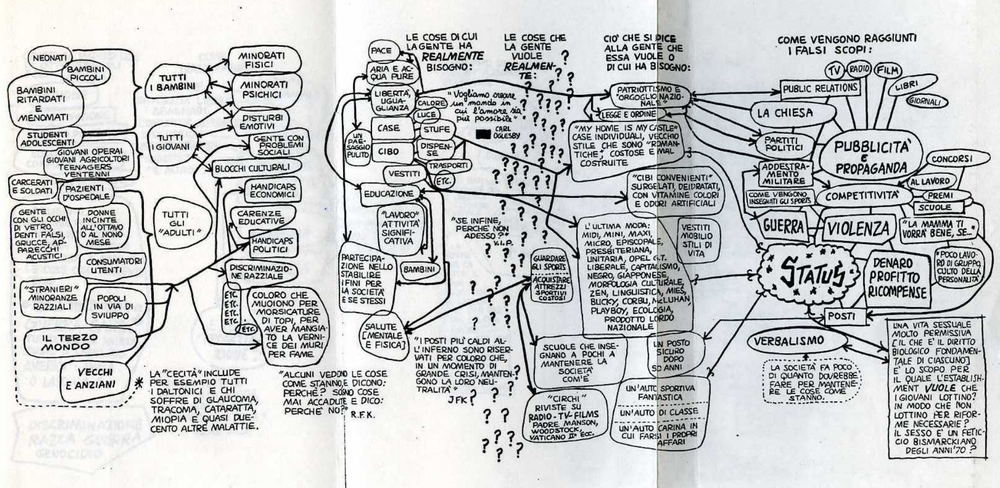 NEONATI
BAMBINI
PICCOLI
BAMBINI
RITARDATI
E
MENOMATI
STUDENTI
ADOLESCENTI
GIOVANI OPERAI
GIOVANI AGRICOLTORI
TEENAGERS
VENTENNI
CARCERATI
E SOLDATI
PAZIENTI
D'OSPEDALE
GENTE
CON GLI OCCHI
DI VETRO,
DENTI FALSI,
GRUCCE, AP-
PARECCHI
ACUSTICI
DONNE
INCINTE
ALL'OTTAVO
O AL NONO
MESE
CONSUMATORI
UTENTI
"STRANIERI"
MINORANZE
RAZZIALI
POPOLI
IN VIA DI
SVILUPPO
IL TERZO
MONDO
VECCHI
E ANZIANI
TUTTI
I BAMBINI
TUTTI
I GIOVANI
TUTTI
GLI
"ADULTI"
MINORATI
FISICI
MINORATI
PSICHICI
DISTURBI
EMOTIVI
GENTE CON
PROBLEMI
SOCIALI
BLOCCHI CULTURALI
HANDICAPS
ECONOMICI
CARENZE
EDUCATIVE
HANDICAPS
POLITICI
DISCRIMINAZIO-
NE RAZZIALE
ETC.
ETC.
ETC.
ETC.
ETC.
COLORO CHE
MUOIONO PER
MORSICATURE
DI TOPI, PER
AVER MANGIA-
TO LA VERNI-
CE DEI MURI
PER FAME
* LA "CECITÀ" INCLUDE
PER ESEMPIO TUTTI
I DALTONICI E CHI
SOFFRE DI GLAUCOMA,
TRACOMA, CATARATTA,
MIOPIA E QUASI DUE-
CENTO ALTRE MALATTIE.
LE COSE DI CUI
LA GENTE HA
REALMENTE
BISOGNO:
PACE
ARIA E AC-
QUA PURE
LIBERTÀ,
UGUA-
GLIANZA
CALORE
LUCE
CASE
STUFE
CIBO
DISPEN-
SE
TRASPORTI
VESTITI
ETC.
UN
PAE-
SAGGIO
PULITO
EDUCAZIONE
"LAVORO"
ATTIVITÀ
SIGNIFI-
CATIVA
PARTECIPA-
ZIONE NELLO
STABILIRE
I FINI PER
LA SOCIETÀ
E SE STESSI
BAMBINI
SALUTE
(MENTALE
E FISICA)
"ALCUNI VEDONO LE COSE
COME STANNO E DICONO:
PERCHÉ? SOGNO COSE
MAI ACCADUTE E DICO:
PERCHÉ NO?"
R.F.K.
LE COSE CHE
LA GENTE
VUOLE
REALMEN-
TE:
"Vogliamo creare
un mondo in
cui l'amore sia
più possibile"
CARL
OGLESBY
"SE INFINE,
PERCHÉ NON
ADESSO?"
V.I.P.
GUARDARE
GLI SPORTS
ACQUISTARE
ATTREZZI
SPORTIVI
COSTOSI
"I POSTI PIU' CALDI AL-
L'INFERNO SONO RISER-
VATI PER COLORO CHE,
IN UN MOMENTO DI
GRANDE CRISI, MANTEN-
GONO LA LORO NEU-
TRALITÀ"
JFK
CIO' CHE SI DICE
ALLA GENTE CHE
ESSA VUOLE O
DI CUI HA BISOGNO:
PATRIOTTISMO E
"ORGOGLIO NAZIO-
NALE"
LEGGE E ORDINE
"MY HOME IS MY CASTLE"
CASE INDIVIDUALI, VECCHIO
STILE CHE SONO "ROMAN-
TICHE", COSTOSE E MAL
COSTRUITE
"CIBI CONVENIENTI"
SURGELATI, DEIDRATATI,
CON VITAMINE COLORI
E ODORI ARTIFICIALI
L'ULTIMA MODA:
MIDI, MINI, MAXI,
MICRO, EPISCOPALE,
PRESBITERIANA,
UNITARIA, OPEL G.T.
LIBERALE, CAPITALISMO,
NEGRO, GIAPPONESE,
MORFOLOGIA CULTURALE,
ZEN, LINGUISTICA, MIES,
BUCKY, CORBU, McLUHAN,
PLAYBOY, ECOLOGIA,
PRODOTTO LORDO
NAZIONALE
VESTITI
MOBILIO
STILI DI
VITA
SCUOLE CHE INSE-
GNANO A POCHI A
MANTENERE LA
SOCIETÀ
COM'È
UN POSTO
SICURO
DOPO
50 ANNI
"CIRCHI"
RIVISTE SU
RADIO-TV-FILMS
PADRE, MANSON,
WOODSTOCK,
VATICANO II° ECC.
UN'AUTO SPORTIVA
FANTASTICA
UN'AUTO DI CLASSE
UN'AUTO CARINA IN
CUI FARSI I PROPRI
AFFARI
COME VENGONO RAGGIUNTI
I FALSI SCOPI:
TV
RADIO
FILM
LIBRI
GIORNALI
PUBLIC RELATIONS
LA CHIESA
PARTITI
POLITICI
PUBBLICITÀ
E
PROPAGANDA
ADDESTRA-
MENTO
MILITARE
COME VENGONO
INSEGNATI GLI SPORTS
COMPETITIVITÀ
CONCORSI
AL LAVORO
PREMI
SCUOLE
GUERRA
VIOLENZA
"LA MAMMA TI
VORRÀ BENE, SE..."
STATUS
DENARO
PROFITTO
RICOMPENSE
"POCO LAVO-
RO DI GRUPPO,
CULTO DELLA
PERSONALITÀ"
POSTI
VERBALISMO
LA SOCIETÀ FA POCO
DI QUANTO DOVREBBE
FARE PER MANTENE-
RE LE COSE COME
STANNO.
UNA VITA SESSUALE
MOLTO PERMISSIVA
(IL CHE È IL DIRITTO
BIOLOGICO FONDAMEN-
TALE DI CIASCUNO)
È LO SCOPO PER
IL QUALE L'ESTABLISH-
MENT VUOLE CHE
I GIOVANI LOTTINO?
IN MODO CHE NON
LOTTINO PER RIFOR-
ME NECESSARIE?
IL SESSO È UN FETIC-
CIO BISMARCKIANO
DEGLI ANNI '70?